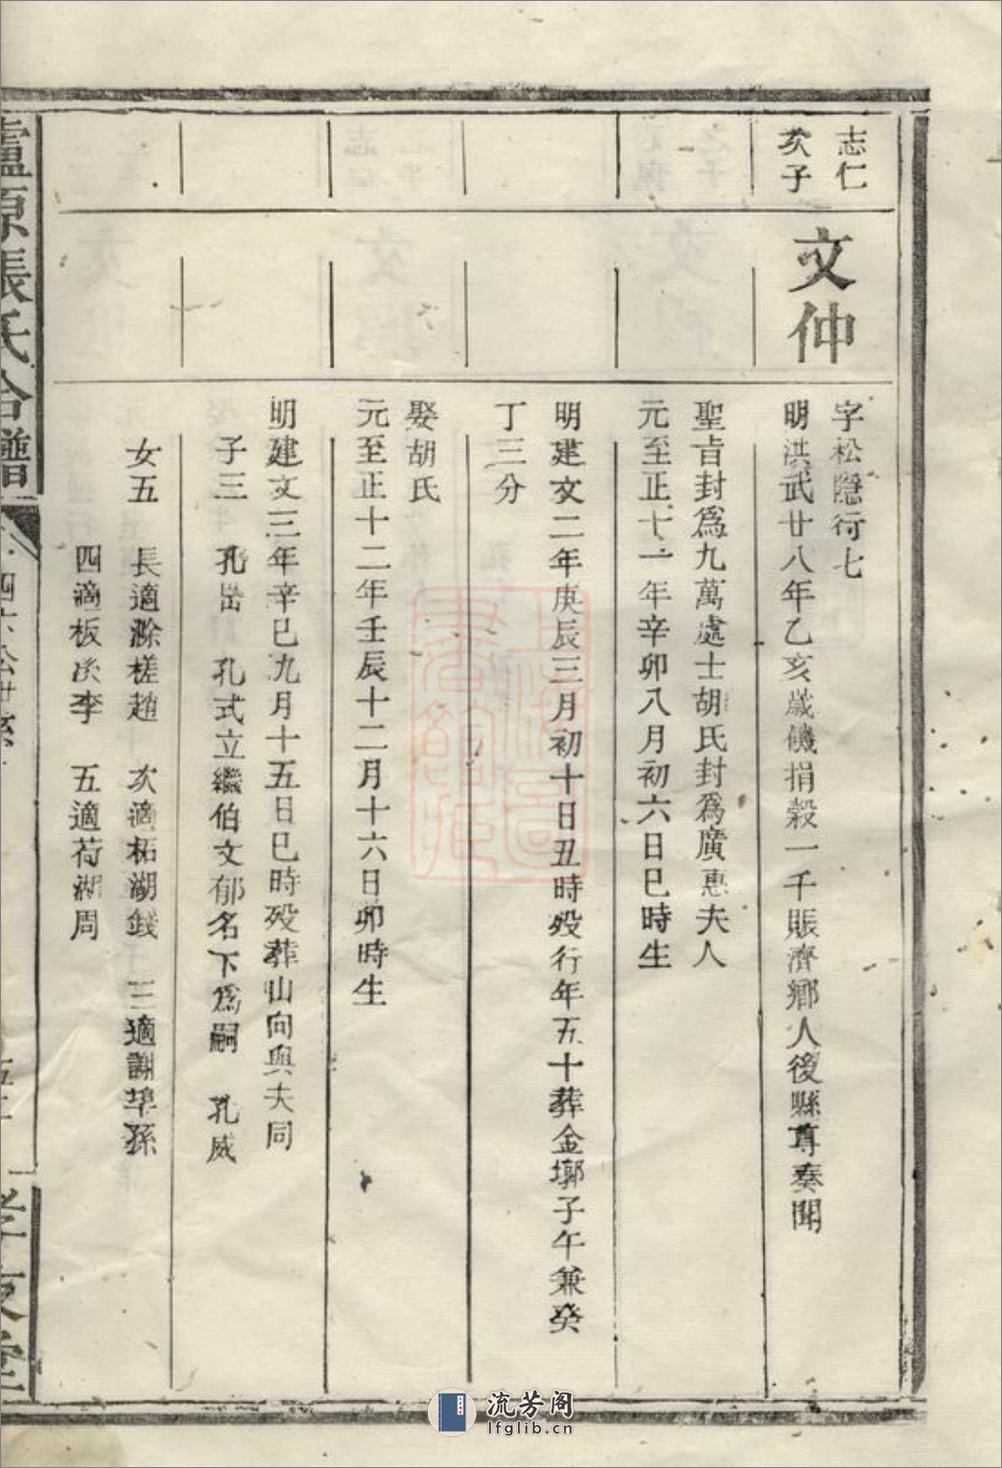 志仁
次子
文仲
字松隱行七
明洪武廿八年乙亥歲饑捐穀一千賑濟鄉人後縣尊奏聞
聖旨封為九萬處士胡氏封為廣惠夫人
元至正十一年辛卯八月初六日巳時生
明建文二年庚辰三月初十日丑時歿行年五十葬金墎子午兼癸
丁三分
娶胡氏
元至正十二年壬辰十二月十六日卯時生
明建文三年辛巳九月十五日巳時歿葬山向與夫同
子三 孔岀 孔式立繼伯文郁名下爲嗣 孔威
女五 長適滁槎趙 次適柘湖錢 三適謝埠孫
四適板溪李 五適荷湖周
張氏合譜
孝友堂
流芳阁
lfglib.cn